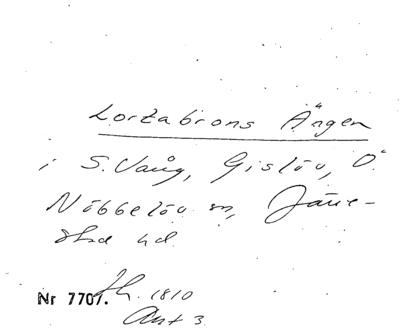 Lortabrons Ängen
i S. Vång, Gislöv, Ö.
Nöbbelöv m, Järre-
stad hd.
Nr 7707. 1810
Akt 3